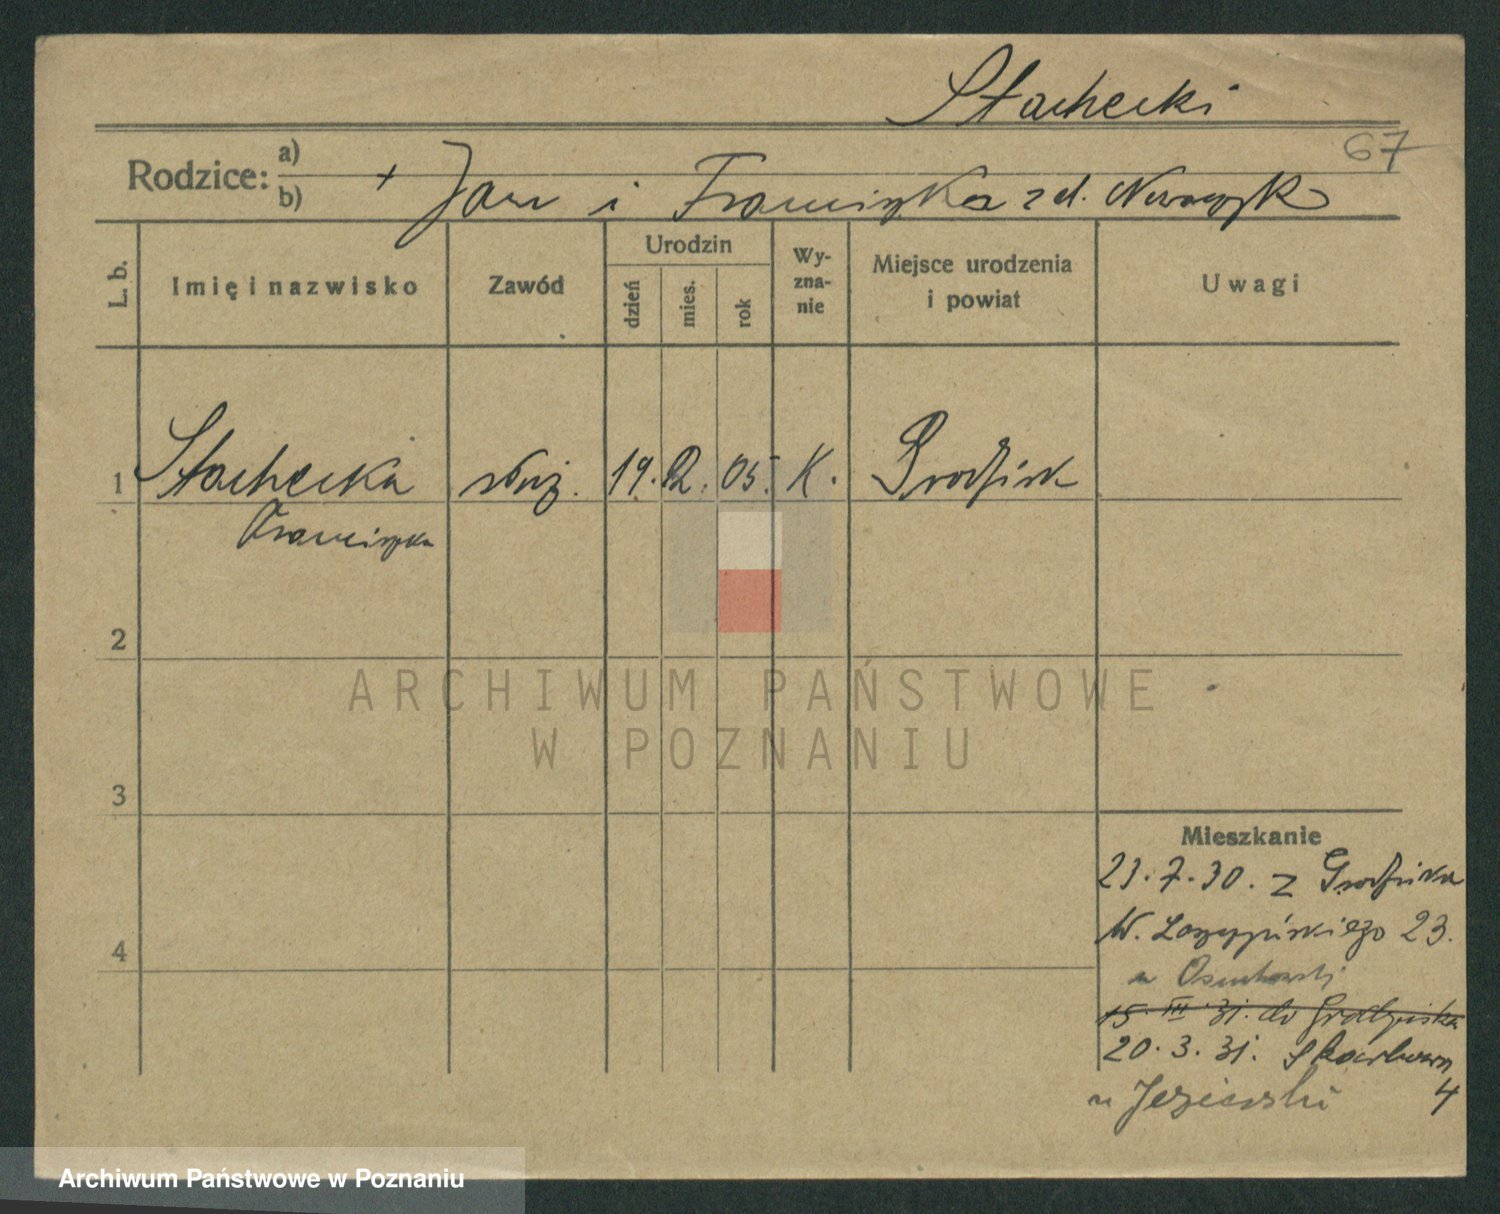 Stachecki
67
Rodzice: a) b) + Jan i Franciszka z d. Nowaczyk
L. b. Imię i nazwisko Zawód Urodzin dzień mies. rok Wyznanie Miejsce urodzenia i powiat Uwagi
1 Stachecka służ. 19. 12. 05. K. Grodzisk
Franciszka
2
ARCHIWUM PAŃSTWOWE
W POZNANIU
3
Mieszkanie
23.7.30. z Grodziska
4
23.
15 III 31. do Grodziska
20.3.31. Skarbowa
4
u Jezierski
Archiwum Państwowe w Poznaniu